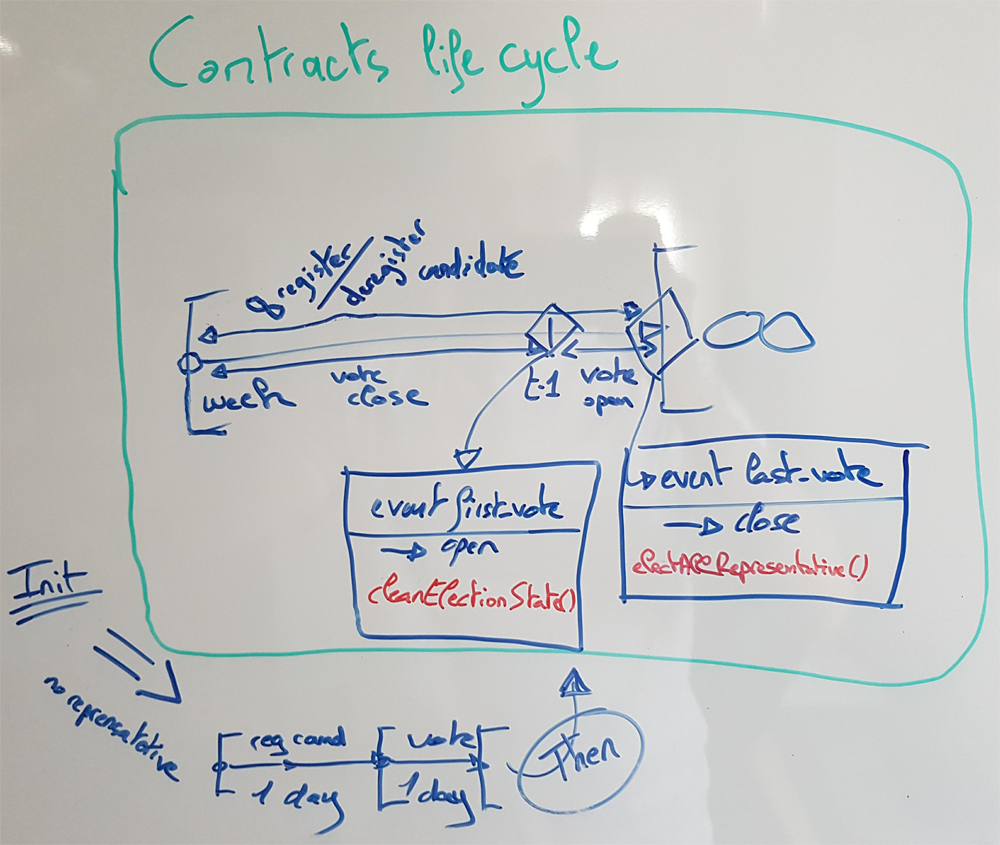 Contracts life cycle
register/
deregister candidate
week
vote
close
t-1
vote
open
event first-vote
→ open
cleanElectionState()
↳ event last-vote
→ close
Init
no reprensatative
reg cand
1 day
vote
1 day
Then